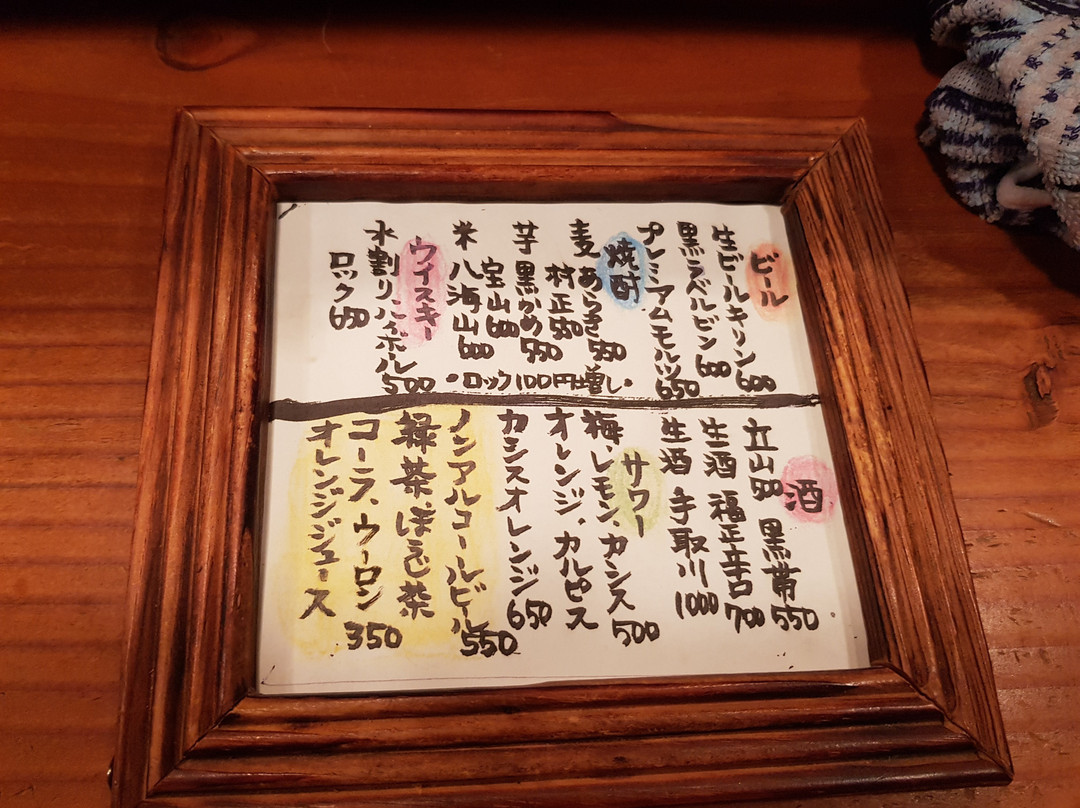 ビール
生ビールキリン 600
黒ラベルビン 600
プレミアムモルツ 650
焼酎
麦 あらき 550
村正 550
芋 黒かめ 550
宝山 600
米 八海山 600
・ロック100円増し・
ウイスキー
水割り ハイボール 500
ロック 650
酒
立山 500 黒帯 550
生酒 福正辛口 700
生酒 手取川 1000
サワー
梅、レモン、カシス
オレンジ、カルピス 500
カシスオレンジ 650
ノンアルコールビール 550
緑茶、ほうじ茶
コーラ、ウーロン
オレンジジュース 350